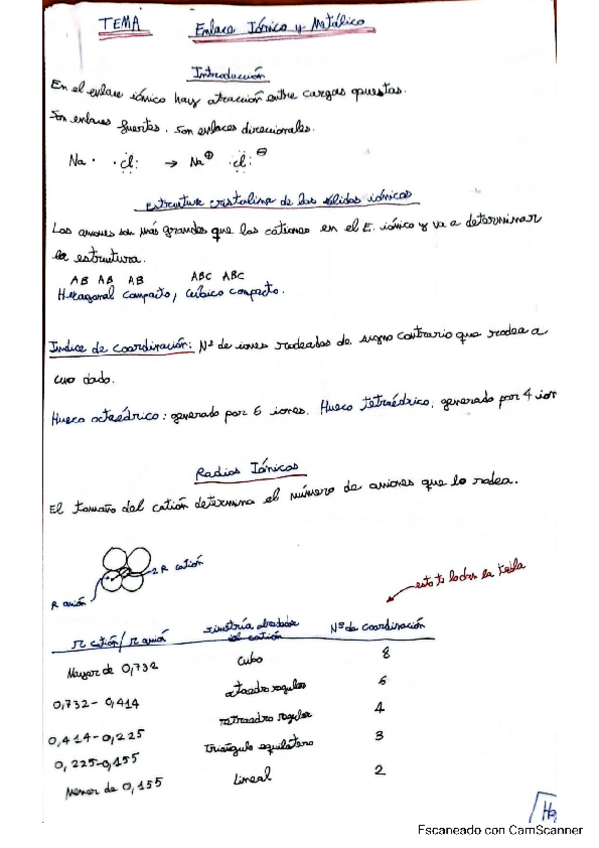 TEMA Enlace Iónico y Metálico
Introducción
En el enlace iónico hay atracción entre cargas opuestas.
Son enlaces fuertes. Son enlaces direccionales.
Na · · Cl : → Na ⊕ Cl : ⊖
estructura cristalina de los sólidos iónicos
Los aniones son más grandes que los cationes en el E. iónico y va a determinar
la estructura.
AB AB AB ABC ABC
Hexagonal compacto, cúbico compacto.
Indice de coordinación: Nº de iones rodeados de signo contrario que rodea a
uno dado.
Hueco octaédrico: generado por 6 iones. Hueco tetraédrico, generado por 4 ion
Radios Iónicos
El tamaño del catión determina el número de aniones que lo rodea.
2R catión
R anión
esto te lo dan la tabla
r catión/r anión simetría alrededor del catión Nº de coordinación
Mayor de 0,732 Cubo 8
0,732-0,414 octaedro regular 6
0,414-0,225 tetraedro regular 4
0,225-0,155 triángulo equilátero 3
Menor de 0,155 Lineal 2
Escaneado con CamScanner